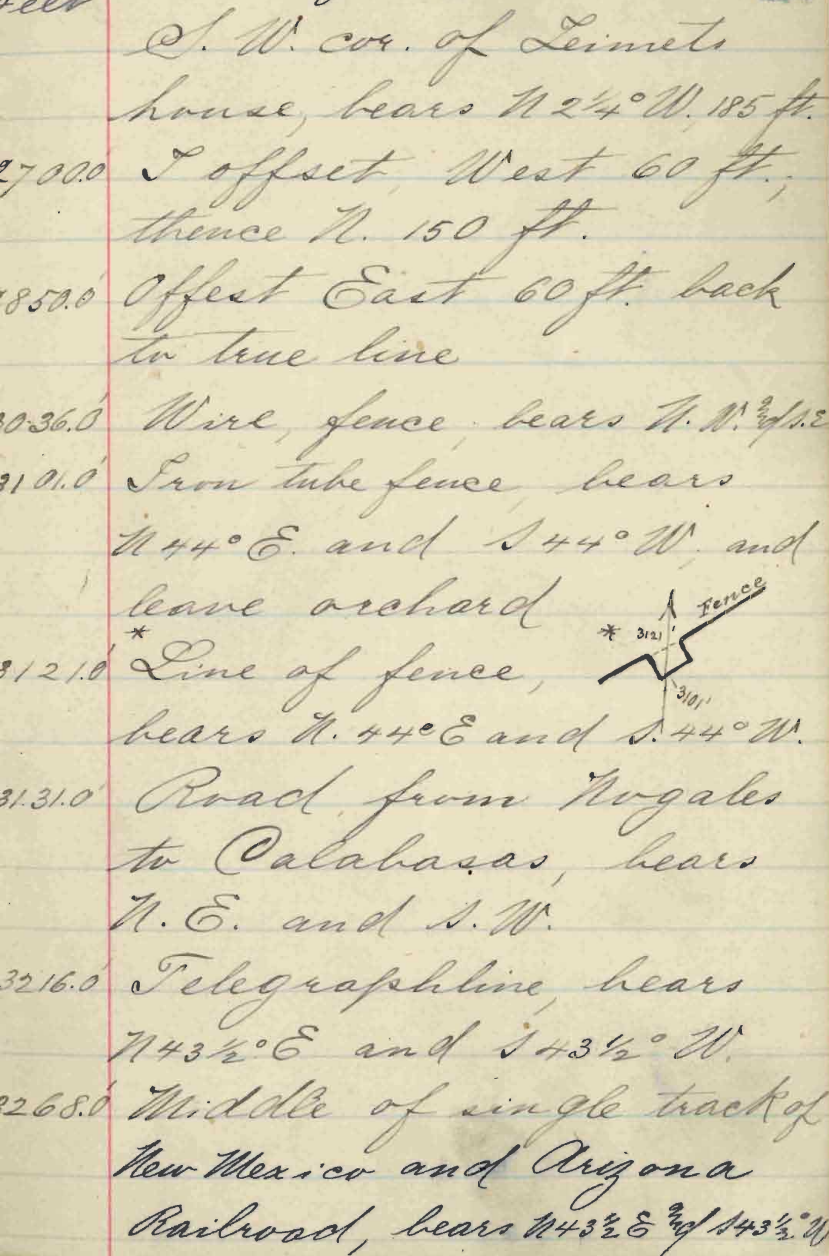 feet
S. W. cor. of Zeimets
house, bears N 2¼° W. 185 ft.
2700.0 I offset, West 60 ft.;
thence N. 150 ft.
850.0 Offest East 60 ft. back
to true line
3036.0 Wire, fence, bears N. W. & S.E
3101.0 Iron tube fence, bears
N 44° E. and S 44° W, and
leave orchard
* 3121' Fence
3121.0 * Line of fence,
3101'
bears N. 44° E and S. 44° W.
3131.0' Road from Nogales
to Calabasas, bears
N. E. and S. W.
3216.0' Telegraphline, bears
N 43½° E and S 43½° W.
3268.0' Middle of single track of
New Mexico and Arizona
Railroad, bears N 43½ E & S 43½° W